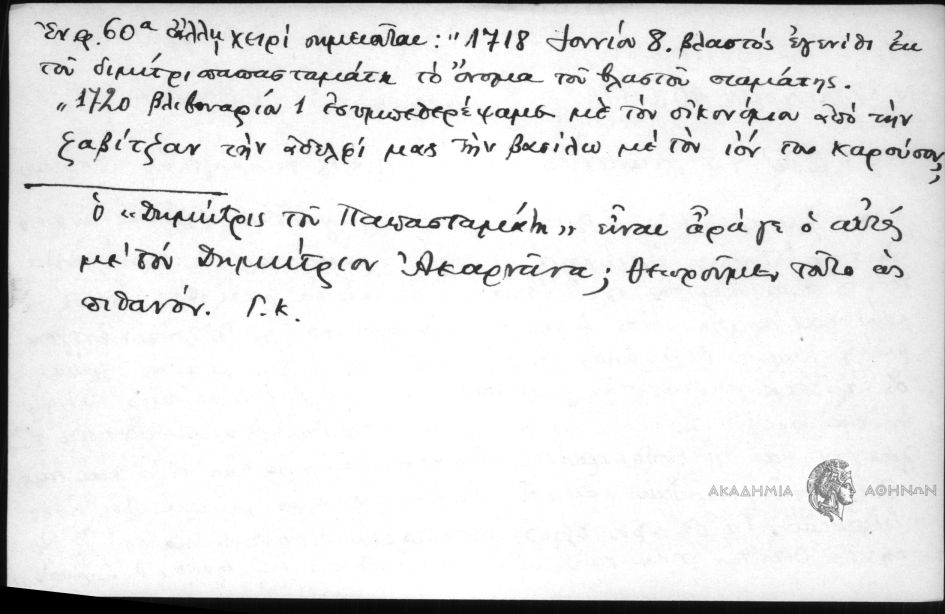 Ἐν φ. 60α ἄλλῃ χειρὶ σημειοῦται: "1718 Ἰουνίου 8. βλαστός ἐγενίθι ἐκ
τοῦ διμίτρι παπασταμάτη τὸ ὄνομα τοῦ βλαστοῦ σταμάτης.
"1720 βλεβουαρίου 1 ἐσυμπεθερέψαμε μὲ τὸν οἰκονόμον ἀπὸ τὴν
ζαβίτζαν τὴν ἀδελφί μας τὴν βασίλω μὲ τὸν ἱόν του καρούσον;
ὁ «Δημήτρις τοῦ Παπασταμάτη» εἶναι ἆρά γε ὁ αὐτός
μὲ τὸν Δημήτριον Ἀκαρνᾶνα; Θεωροῦμεν τοῦτο ὡς
πιθανόν. Γ.κ.
ΑΚΑΔΗΜΙΑ ΑΘΗΝΩΝ